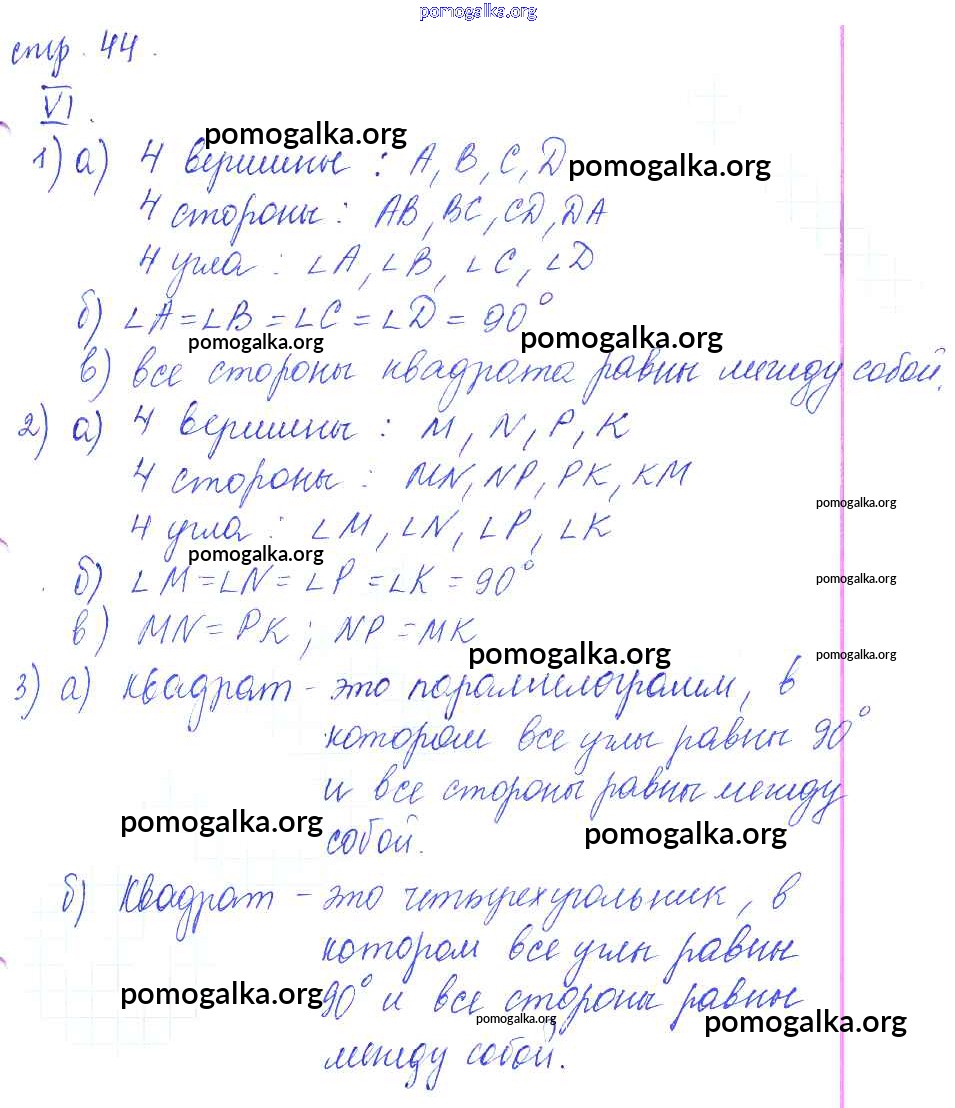 pomogalka.org
стр. 44.
VI.
pomogalka.org
1) а) 4 вершины : A, B, C, D
pomogalka.org
4 стороны : AB, BC, CD, DA
4 угла : ∠A, ∠B, ∠C, ∠D
б) ∠A = ∠B = ∠C = ∠D = 90°
pomogalka.org
pomogalka.org
в) все стороны квадрата равны между собой.
2) а) 4 вершины : M, N, P, K
4 стороны : MN, NP, PK, KM
pomogalka.org
4 угла : ∠M, ∠N, ∠P, ∠K
pomogalka.org
б) ∠M = ∠N = ∠P = ∠K = 90°
pomogalka.org
в) MN = PK ; NP = MK
pomogalka.org
pomogalka.org
3) а) Квадрат - это параллелограмм, в
котором все углы равны 90°
и все стороны равны между
pomogalka.org
pomogalka.org
собой.
б) Квадрат - это четырехугольник, в
котором все углы равны
pomogalka.org
90° и все стороны равны
pomogalka.org
pomogalka.org
между собой.